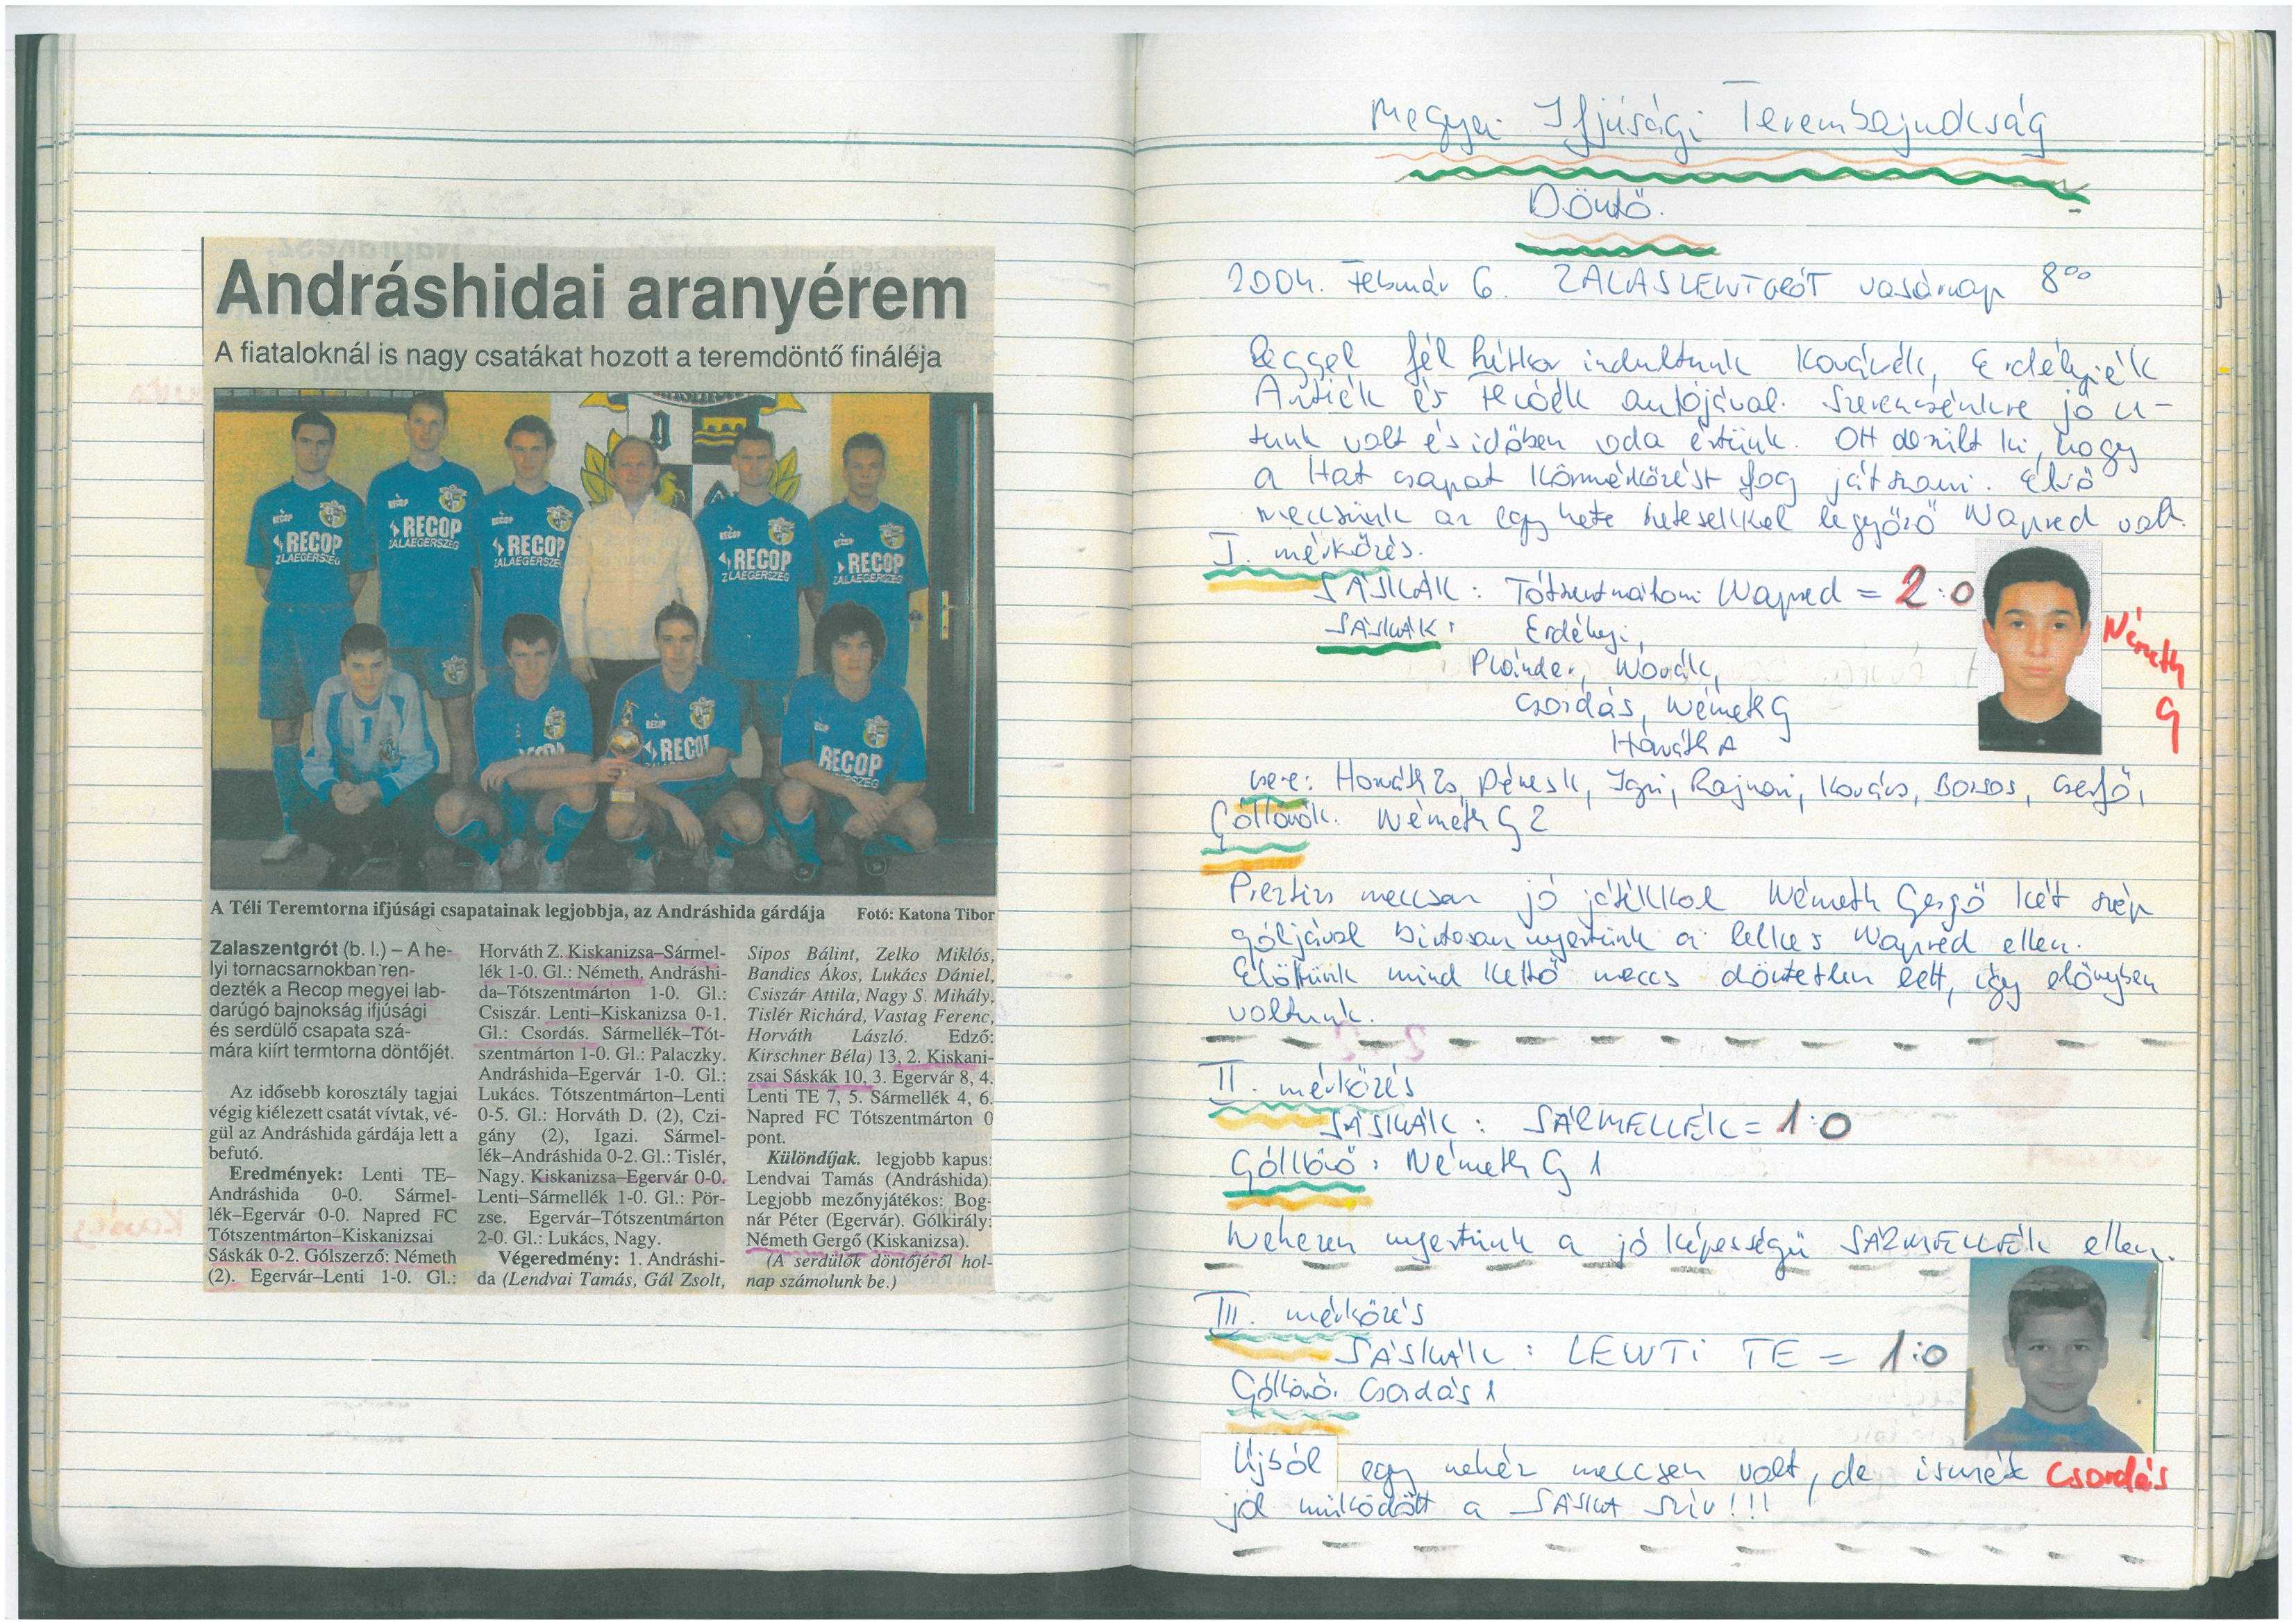 Andráshidai aranyérem
A fiataloknál is nagy csatákat hozott a teremdöntő fináléja
RECOP
ZALAEGERSZEG
RECOP
ZALAEGERSZEG
RECOP
ZALAEGERSZEG
RECOP
ZALAEGERSZEG
RECOP
ZALAEGERSZEG
1
RECOP
RECOP
A Téli Teremtorna ifjúsági csapatainak legjobbja, az Andráshida gárdája Fotó: Katona Tibor
Zalaszentgrót (b. l.) – A he-
lyi tornacsarnokban ren-
dezték a Recop megyei lab-
darúgó bajnokság ifjúsági
és serdülő csapata szá-
mára kiírt termtorna döntőjét.
Az idősebb korosztály tagjai
végig kiélezett csatát vívtak, vé-
gül az Andráshida gárdája lett a
befutó.
Eredmények: Lenti TE–
Andráshida 0-0. Sármel-
lék–Egervár 0-0. Napred FC
Tótszentmárton–Kiskanizsai
Sáskák 0-2. Gólszerző: Németh
(2). Egervár–Lenti 1-0. Gl.:
Horváth Z. Kiskanizsa–Sármel-
lék 1-0. Gl.: Németh. Andráshi-
da–Tótszentmárton 1-0. Gl.:
Csiszár. Lenti–Kiskanizsa 0-1.
Gl.: Csordás. Sármellék–Tót-
szentmárton 1-0. Gl.: Palaczky.
Andráshida–Egervár 1-0. Gl.:
Lukács. Tótszentmárton–Lenti
0-5. Gl.: Horváth D. (2), Czi-
gány (2), Igazi. Sármel-
lék–Andráshida 0-2. Gl.: Tislér,
Nagy. Kiskanizsa–Egervár 0-0.
Lenti–Sármellék 1-0. Gl.: Pör-
zse. Egervár–Tótszentmárton
2-0. Gl.: Lukács, Nagy.
Végeredmény: 1. Andráshi-
da (Lendvai Tamás, Gál Zsolt,
Sipos Bálint, Zelko Miklós,
Bandics Ákos, Lukács Dániel,
Csiszár Attila, Nagy S. Mihály,
Tislér Richárd, Vastag Ferenc,
Horváth László. Edző:
Kirschner Béla) 13, 2. Kiskani-
zsai Sáskák 10, 3. Egervár 8, 4.
Lenti TE 7, 5. Sármellék 4, 6.
Napred FC Tótszentmárton 0
pont.
Különdíjak. legjobb kapus:
Lendvai Tamás (Andráshida).
Legjobb mezőnyjátékos: Bog-
nár Péter (Egervár). Gólkirály:
Németh Gergő (Kiskanizsa).
(A serdülők döntőjéről hol-
nap számolunk be.)
Megyei Ifjúsági Terembajnokság
Döntő.
2004. Február 6. ZALASZENTGRÓT vasárnap 8⁰⁰
Reggel fél hétkor indultunk Erdélyiék
és autójával. Szerencsénkre jó u-
tunk volt és időben oda értünk. Ott derült ki, hogy
a Hat csapat körmérkőzést fog játszani. Első
meccsünk az egy hete legyőző Napred volt.
I. mérkőzés.
SÁSKÁK : Tótszentmártoni Napred = 2:0
SÁSKÁK: Erdélyi,
Plánder, Novák,
Csordás, Németh G
Horváth A
Németh
G
csere: Horváth Zs, Péntek, Rajnai, Kovács, Borsos, Cserfő,
Góllövők. Németh G 2
meccsen jó játékkal Németh Gergő két szép
góljával biztosan nyertünk a lelkes Napred ellen.
Előttünk mind kettő meccs döntetlen lett, így előnyben
voltunk.
II. mérkőzés
SÁSKÁK : SÁRMELLÉK = 1:0
Góllövő: Németh G 1
Nehezen nyertünk a jó képességű SÁRMELLÉK ellen.
III. mérkőzés
SÁSKÁK : LENTI TE = 1:0
Góllövő. Csordás 1
Újból egy nehéz meccsen volt, de ismét
Csordás
jól működött a SÁSKA szív!!!